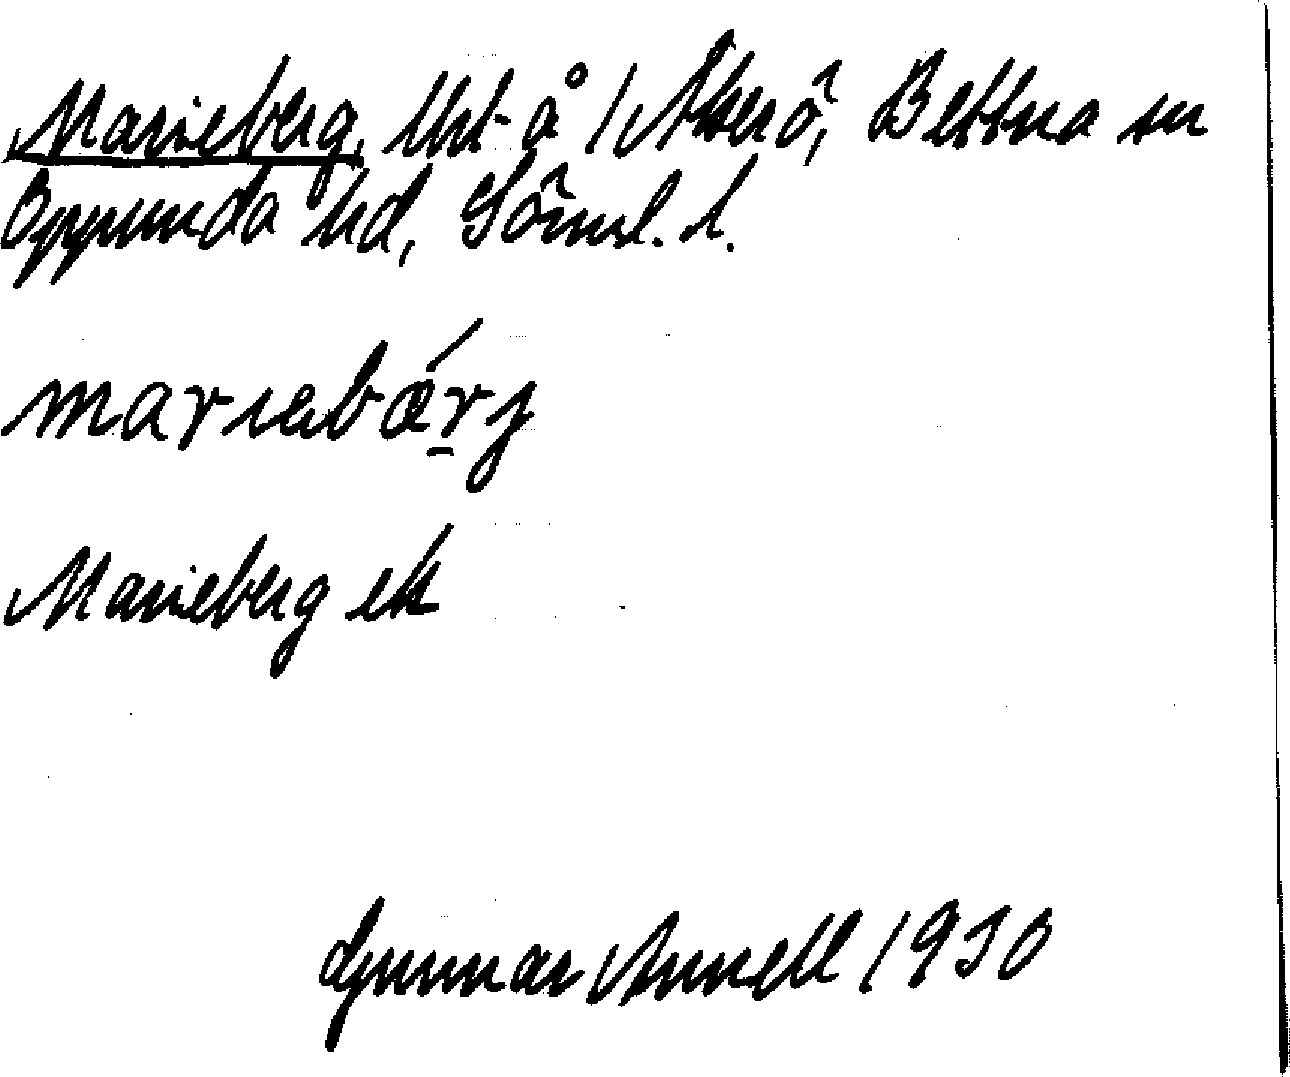 Marieberg, Utd å 1 Åkerö, Bettna sn
Oppunda hd, Södml. l.
mariebǽrj
Marieberg ek
Gunnar Annell 1930